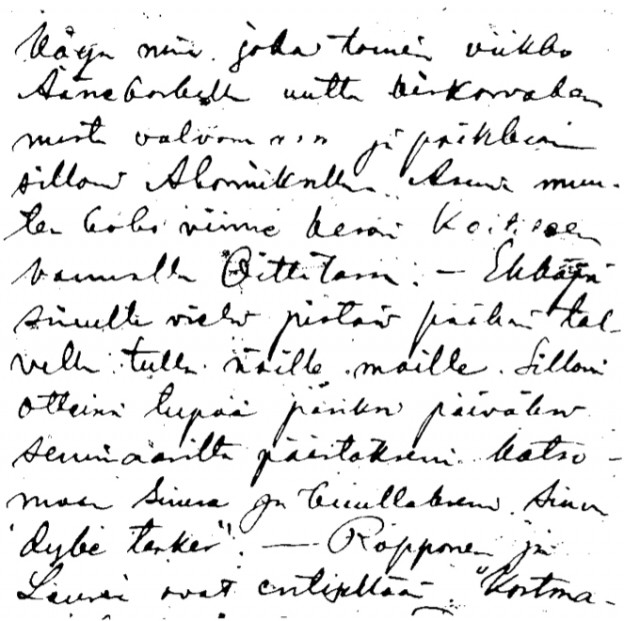 Käyn niin joka toinen viikko
Äänekoskella uutta kirkon
mista valvomassa ja poikkean
silloin Ahonniksella. Asun muu-
ten koko viime kesän Koiviston
vaimolla Oittilassa. — Ehkäpä
sinulla vielä pistää päähän tal-
vella tulla näille maille. Silloin
ottaisin lupaa pariksi päiväksi
seminaarilta päästäkseni katso-
maan Sinua ja kuullakseni Sinun
"dybe tanker". — Ropponen ja
Lauri ovat entisellään. "Kortma-